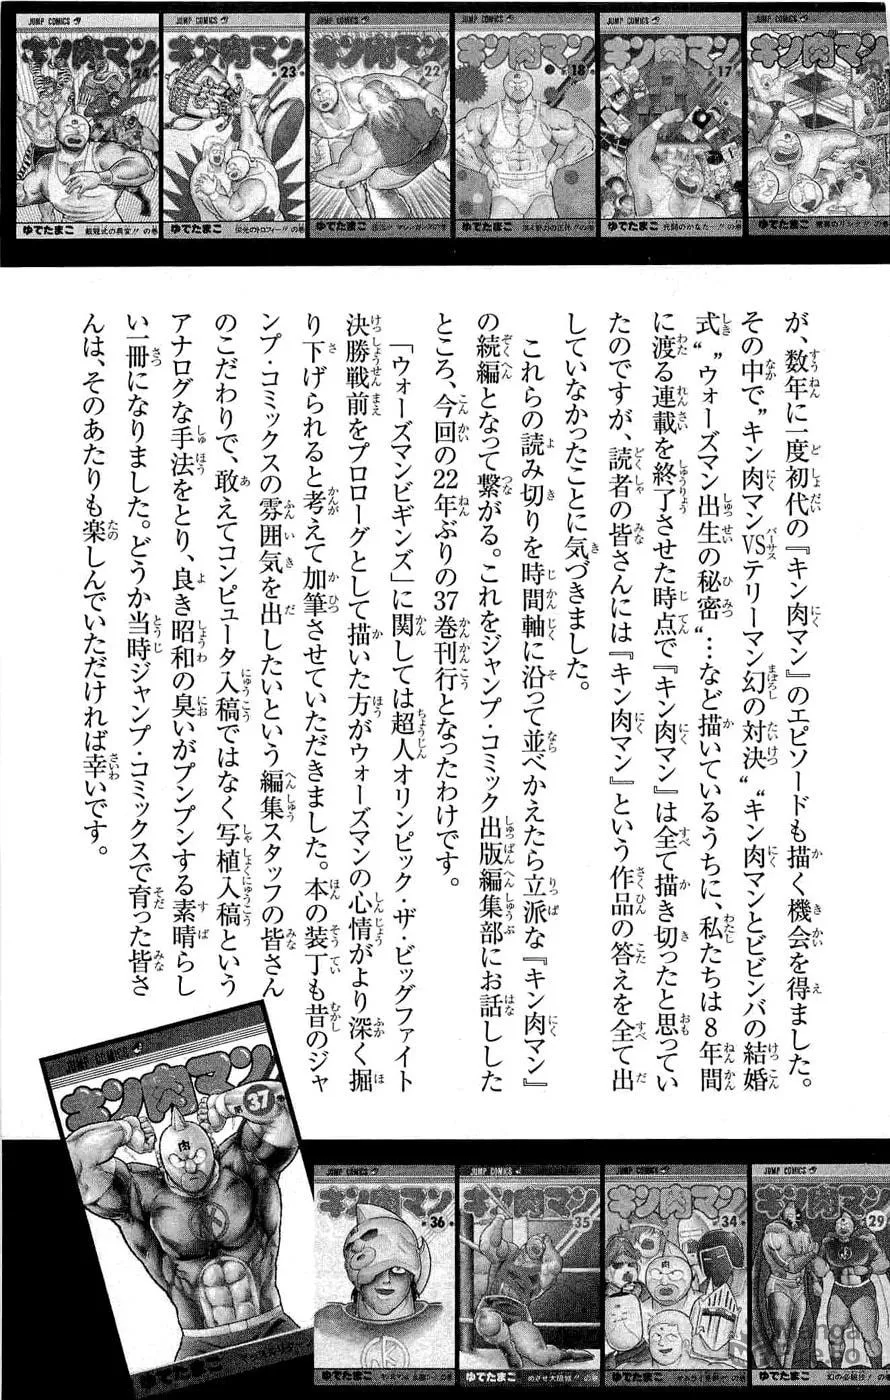 JUMP COMICS
キン肉マン
24
ゆでたまご
戴冠式の異変!!の巻
JUMP COMICS
キン肉マン
23
ゆでたまご
栄光のトロフィー!!の巻
JUMP COMICS
キン肉マン
22
ゆでたまご
JUMP COMICS
キン肉マン
18
ゆでたまご
JUMP COMICS
キン肉マン
17
ゆでたまご
JUMP COMICS
キン肉マン
ゆでたまご
が、数年に一度初代の『キン肉マン』のエピソードも描く機会を得ました。
その中で”キン肉マンVSテリーマン幻の対決“”キン肉マンとビビンバの結婚
式“”ウォーズマン出生の秘密“…など描いているうちに、私たちは8年間
に渡る連載を終了させた時点で『キン肉マン』は全て描き切ったと思ってい
たのですが、読者の皆さんには『キン肉マン』という作品の答えを全て出
していなかったことに気づきました。
これらの読み切りを時間軸に沿って並べかえたら立派な『キン肉マン』
の続編となって繋がる。これをジャンプ・コミック出版編集部にお話しした
ところ、今回の22年ぶりの37巻刊行となったわけです。
「ウォーズマンビギンズ」に関しては超人オリンピック・ザ・ビッグファイト
決勝戦前をプロローグとして描いた方がウォーズマンの心情がより深く掘
り下げられると考えて加筆させていただきました。本の装丁も昔のジャ
ンプ・コミックスの雰囲気を出したいという編集スタッフの皆さん
のこだわりで、敢えてコンピュータ入稿ではなく写植入稿という
アナログな手法をとり、良き昭和の臭いがプンプンする素晴らし
い一冊になりました。どうか当時ジャンプ・コミックスで育った皆さ
んは、そのあたりも楽しんでいただければ幸いです。
JUMP COMICS
キン肉マン
第37巻
ゆでたまご
JUMP COMICS
キン肉マン
36
ゆでたまご
JUMP COMICS
キン肉マン
35
ゆでたまご
めざせ大阪城!!の巻
JUMP COMICS
キン肉マン
34
ゆでたまご
JUMP COMICS
キン肉マン
29
ゆでたまご